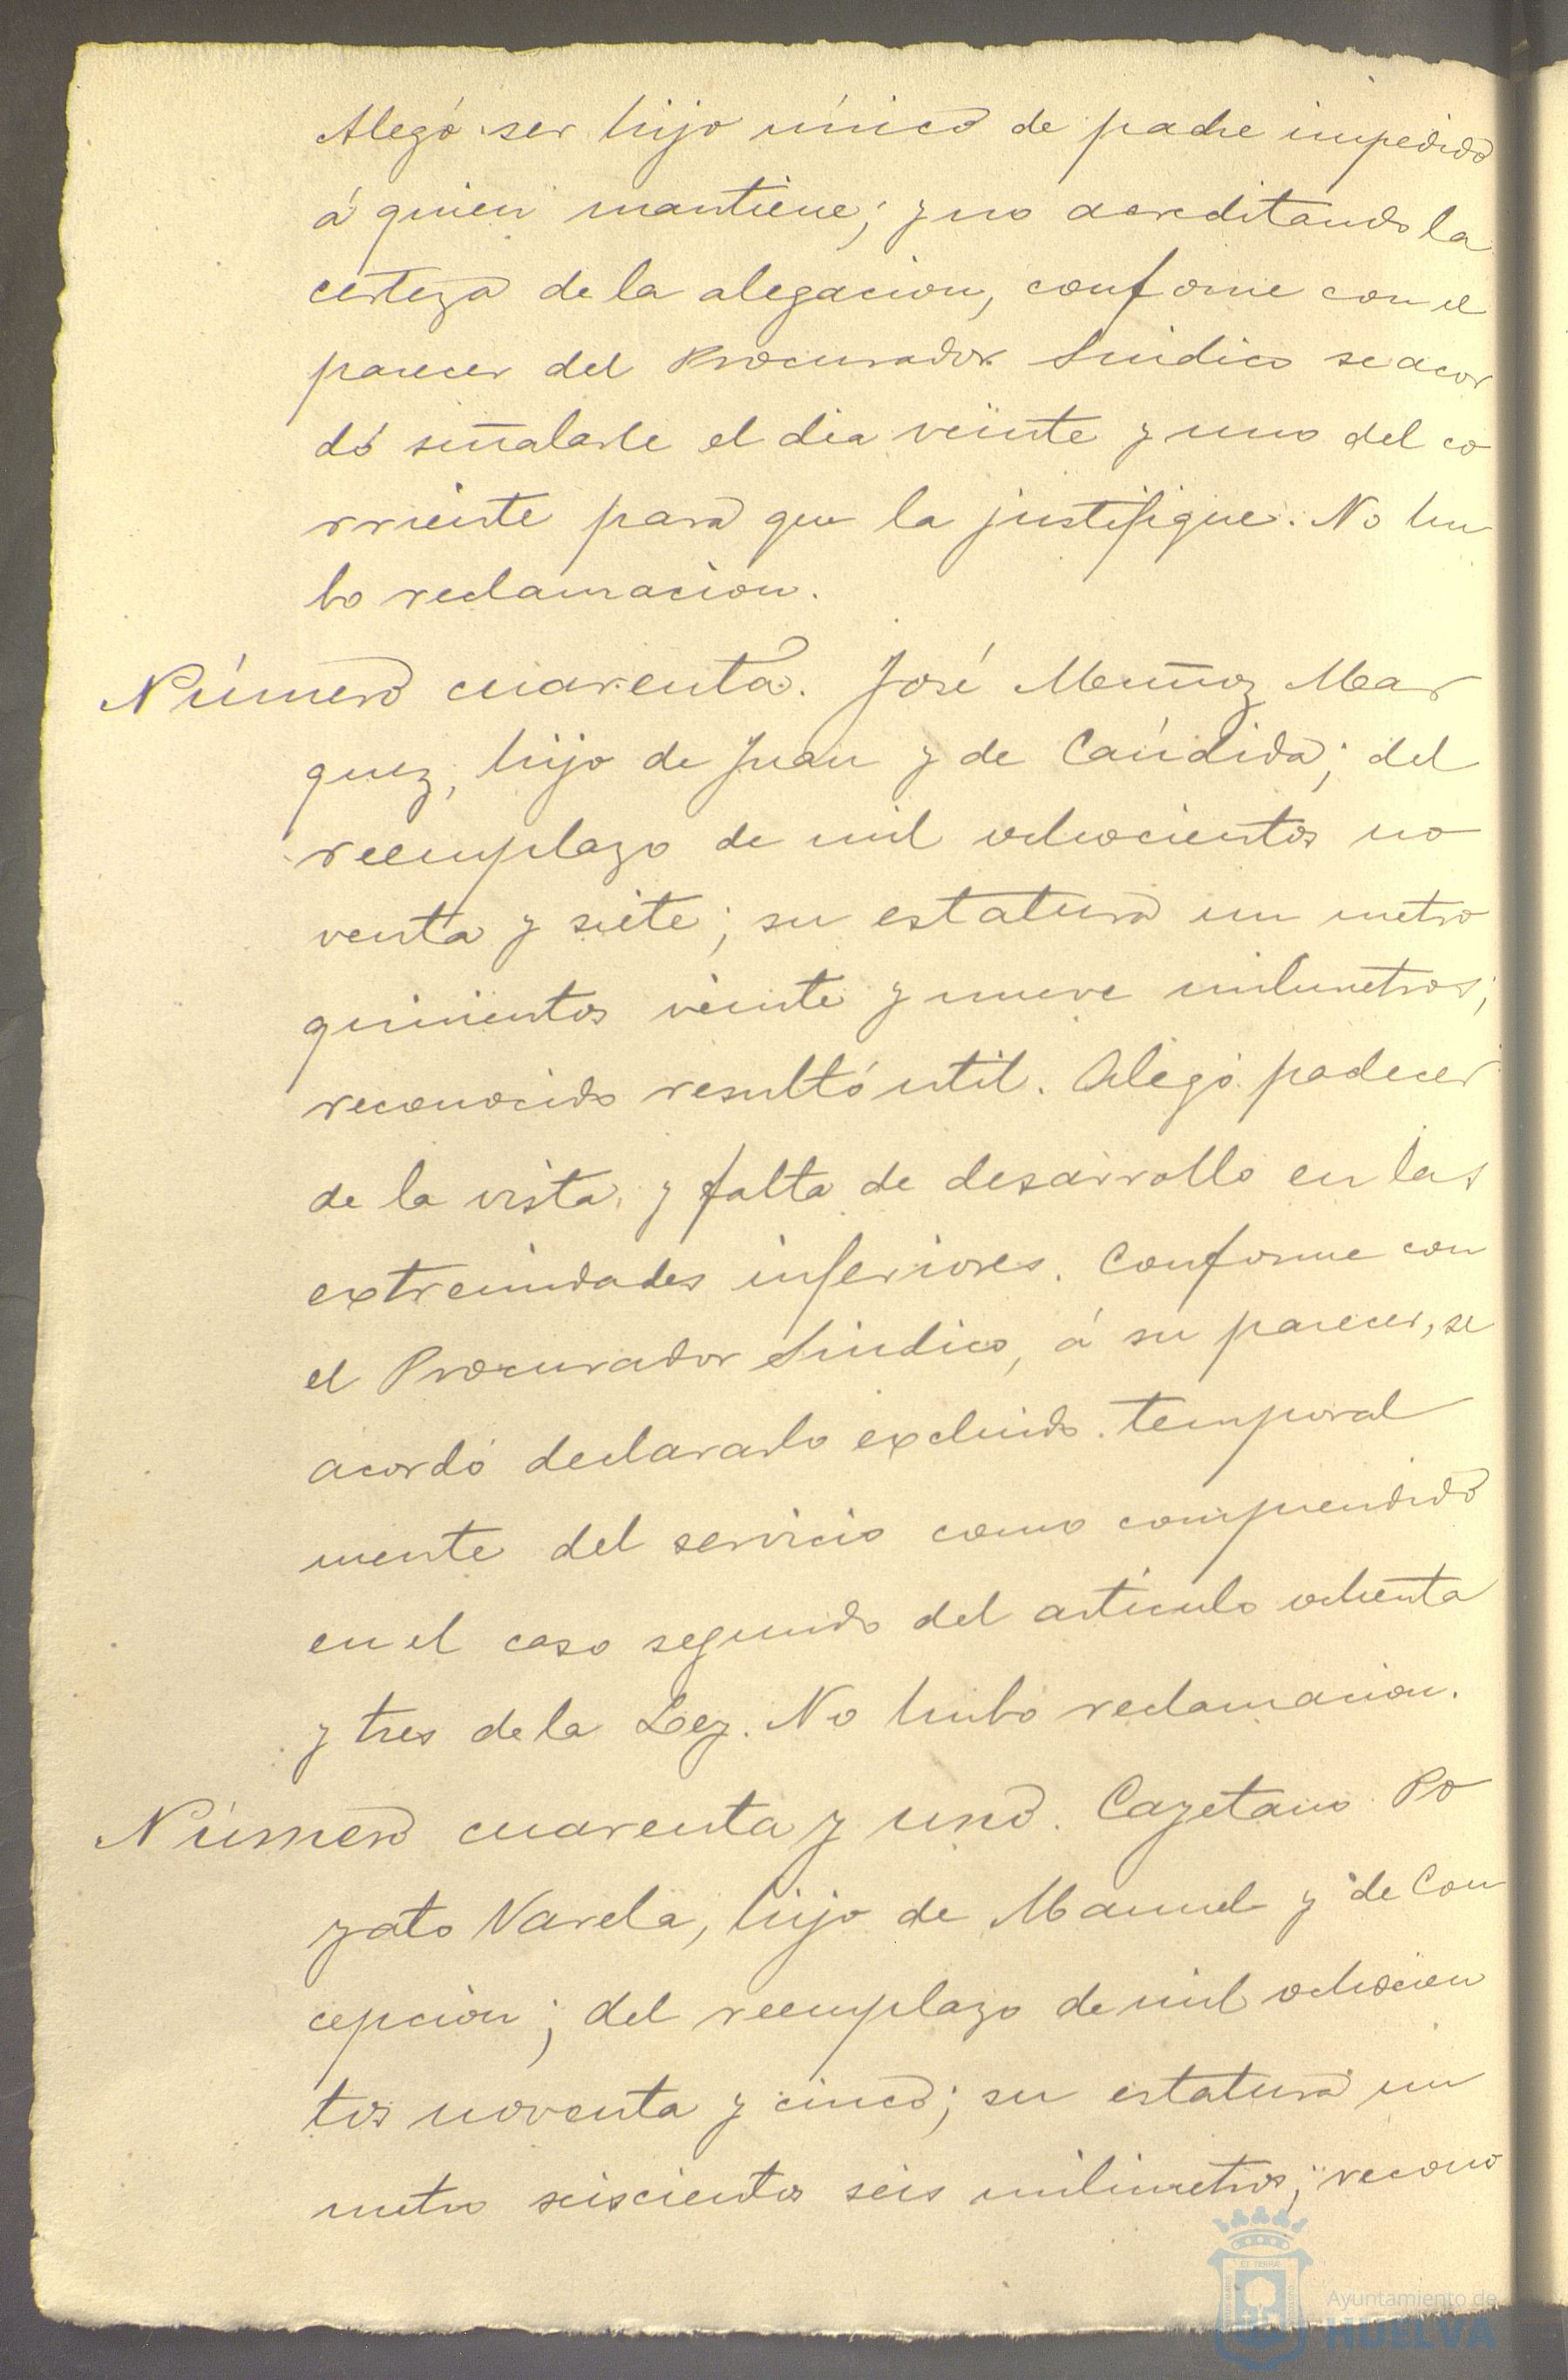 Alegó ser hijo único de padre impedido
á quien mantiene; y no acreditando la
certeza de la alegacion, conforme con el
parecer del Procurador Sindico se acor
dó señalarle el dia veinte y uno del co
rriente para que la justifique. No hu
bo reclamacion.
Número cuarenta. José Muñoz Mar
quez, hijo de Juan y de Cándida; del
reemplazo de mil ochocientos no
venta y siete; su estatura un metro
quinientos veinte y nueve milimetros;
reconocido resultó util. Alegó padecer
de la vista y falta de desarrollo en las
extremidades inferiores. Conforme con
el Procurador Sindico, á su parecer, se
acordó declararlo excluido temporal
mente del servicio como comprendido
en el caso segundo del artículo ochenta
y tres de la Ley. No hubo reclamacion.
Número cuarenta y uno. Cayetano Po
yato Varela, hijo de Manuel y de Con
cepcion; del reemplazo de mil ochocien
tos noventa y cinco; su estatura un
metro seiscientos seis milimetros; recono
Ayuntamiento de
HUELVA